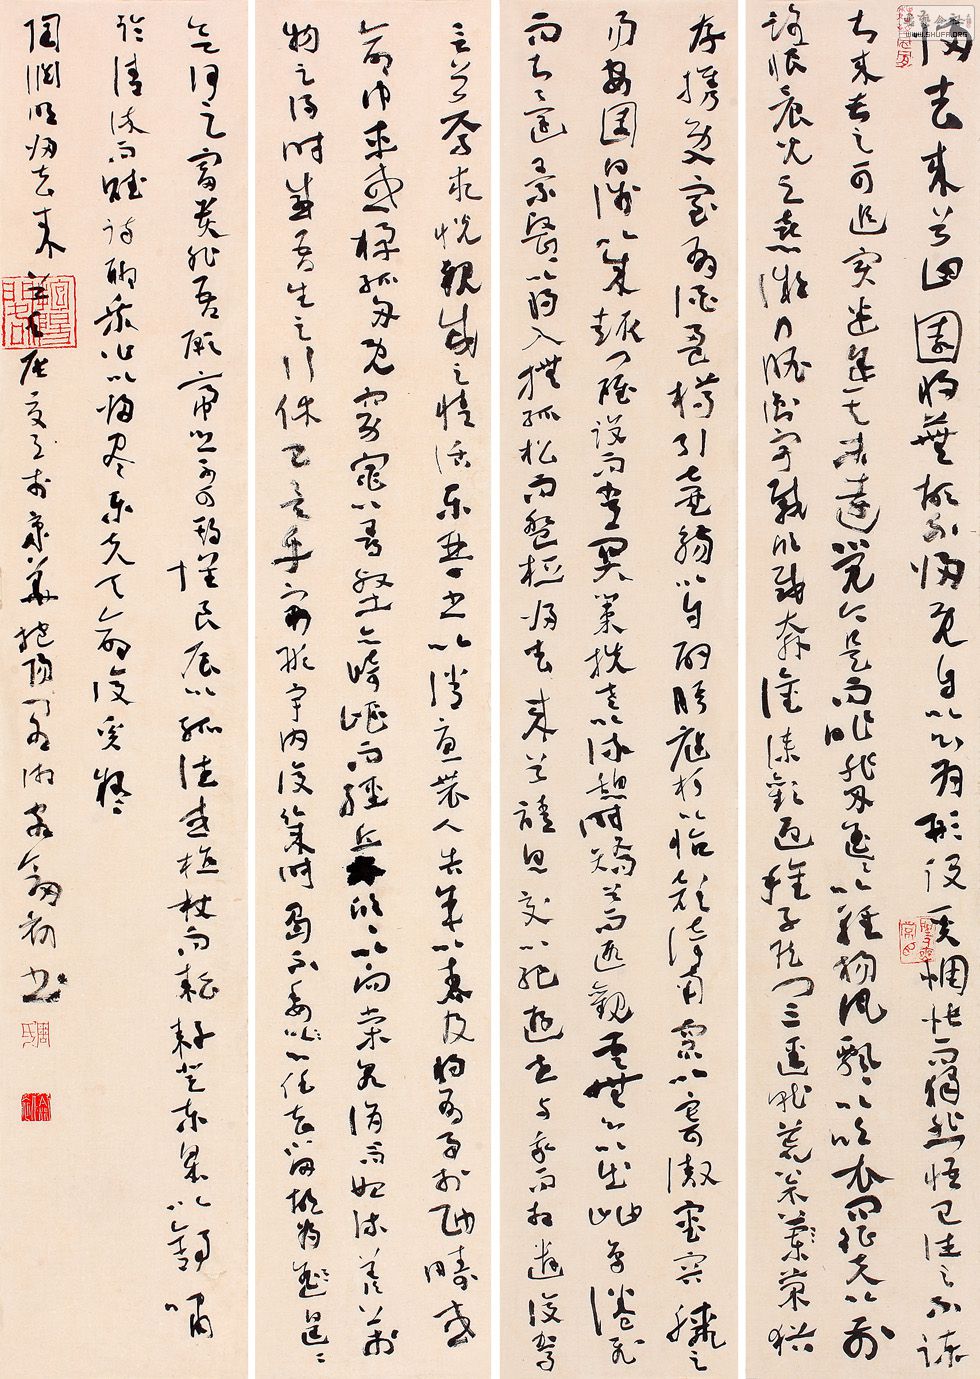 歸去來兮田園將蕪胡不歸既自以心為形役奚惆悵而獨悲悟已往之不諫
知來者之可追實迷途其未遠覺今是而昨非舟遙遙以輕颺風飄飄以吹衣問征夫以前
路恨晨光之熹微乃瞻衡宇載欣載奔僮僕歡迎稚子候門三逕就荒松菊猶
存攜幼入室有酒盈樽引壺觴以自酌眄庭柯以怡顏倚南窗以寄傲審容膝之
易安園日涉以成趣門雖設而常關策扶老以流憩時矯首而遐觀雲無心以出岫鳥倦飛
而知還景翳翳以將入撫孤松而盤桓歸去來兮請息交以絕遊世與我而相遺復駕
言兮焉求悅親戚之情話樂琴書以消憂農人告余以春及將有事於西疇或
命巾車或棹孤舟既窈窕以尋壑亦崎嶇而經丘木欣欣以向榮泉涓涓而始流羨萬
物之得時感吾生之行休已矣乎寓形宇內復幾時曷不委心以任去留胡為遑遑
欲何之富貴非吾願帝鄉不可期懷良辰以孤往或植杖而耘耔登東皋以舒嘯
臨清流而賦詩聊乘化以歸盡樂夫天命復奚疑
陶淵明歸去來
WWW.SHUFA.ORG